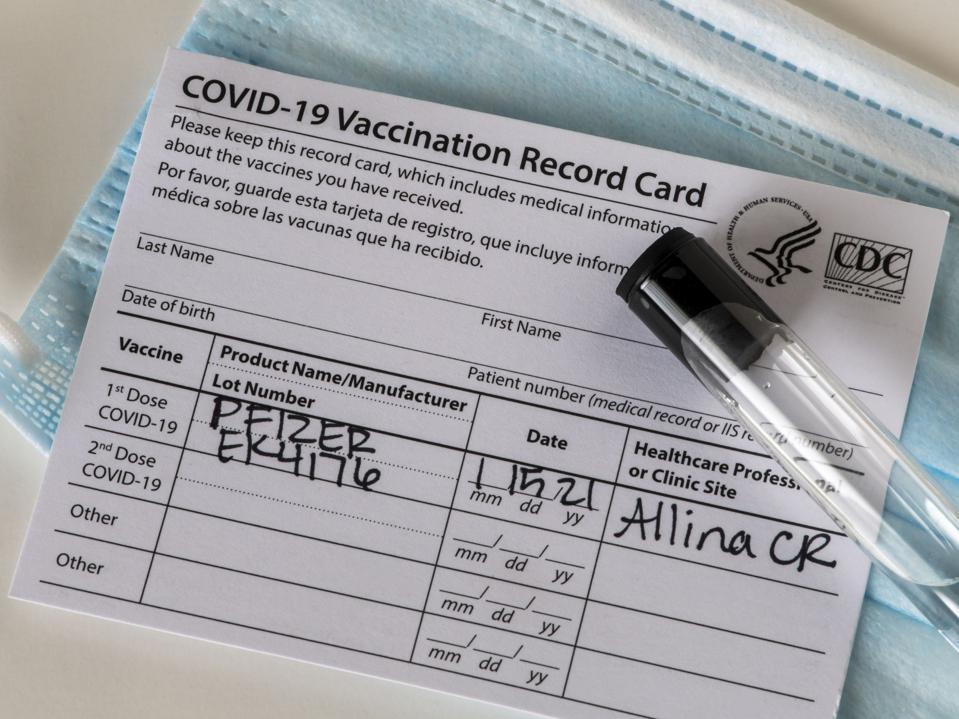 COVID-19 Vaccination Record Card
Please keep this record card, which includes medical information
about the vaccines you have received.
Por favor, guarde esta tarjeta de registro, que incluye
médica sobre las vacunas que ha recibido.
DEPARTMENT OF HEALTH & HUMAN SERVICES • USA
CDC
CENTERS FOR DISEASE
CONTROL AND PREVENTION
Last Name
First Name
Date of birth
Patient number (medical record or IIS record number)
Vaccine
Product Name/Manufacturer
Lot Number
Date
Healthcare Professional
or Clinic Site
1st Dose
COVID-19
PFIZER
EK4176
1 15 21
mm dd yy
Allina CR
2nd Dose
COVID-19
mm / dd / yy
Other
mm / dd / yy
Other
mm / dd / yy